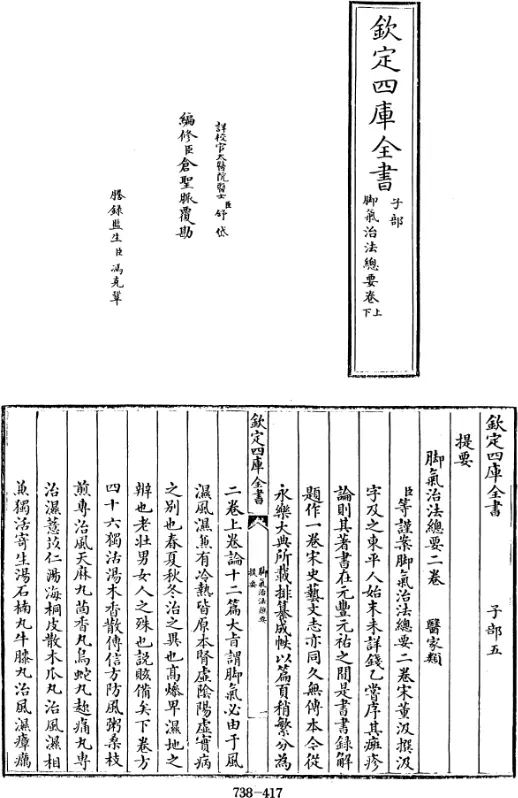 欽定四庫全書
子部
脚氣治法總要卷上下
詳校官太醫院醫士臣舒岱
編修臣倉聖脈覆勘
謄錄監生臣馮克鞏
欽定四庫全書 子部五
提要
脚氣治法總要二卷 醫家類
臣等謹案脚氣治法總要二卷宋董汲撰汲
字及之東平人始末未詳錢乙嘗序其斑疹
論則其著書在元豐元祐之間是書書録解
題作一卷宋史藝文志亦同久無傳本今從
永樂大典所載排纂成帙以篇頁稍繁分為
欽定四庫全書
脚氣治法總要
提要
一
二卷上卷論十二篇大㫖謂脚氣必由于風
濕風濕兼有冷熱皆原本腎虛陰陽虛實病
之别也春夏秋冬治之異也髙燥卑濕地之
辨也老壯男女人之殊也説賅備矣下卷方
四十六獨活湯木香散傳信方防風粥桑枝
煎專治風天麻丸茴香丸烏蛇丸趁痛丸專
治濕薏苡仁湯海桐皮散木瓜丸治風濕相
兼獨活寄生湯石楠丸牛膝丸治風濕瘴癘
738-417